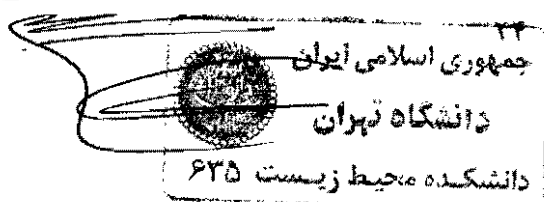 ۲۴
جمهوری اسلامی ایران
دانشگاه تهران
دانشکده محیط زیست ۶۳۵